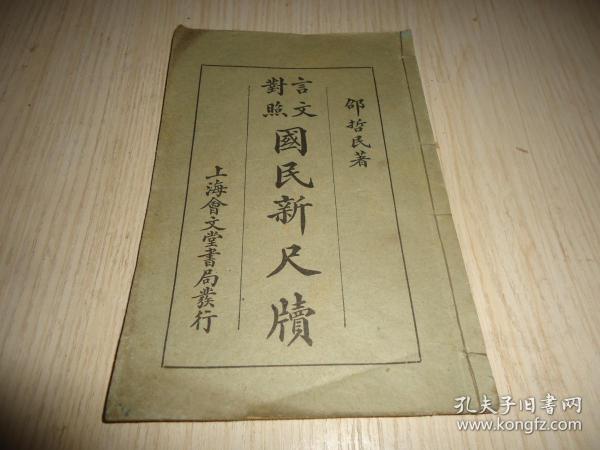 邵哲民著
言文
對照
國民新尺牘
上海會文堂書局發行
孔夫子旧书网
www.kongfz.com